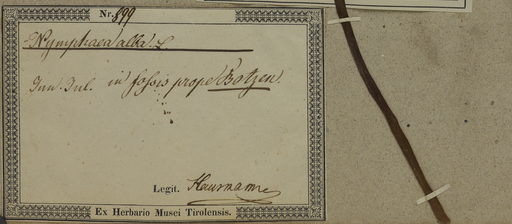 Nr. 899
Nymphaea alba. L
Jun. Jul. in fossis prope Botzen.
Legit. Hausmann
Ex Herbario Musei Tirolensis.